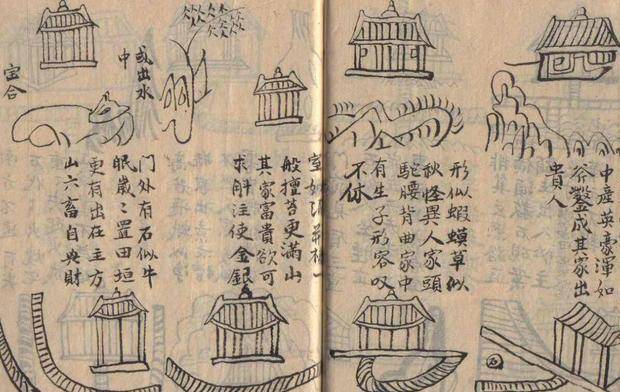 中產英豪渾如
鑿成其家出
貴人
形似蝦蟆草似
秋怪異人家頭
駝腰背曲家中
有生子形容叹
不休
室如
一
般更滿山
其家富貴欲可
求注使金銀
或出水
中
门外有石似牛
眠歲〻置田垣
更有出在主方
山六畜自典財
宝合